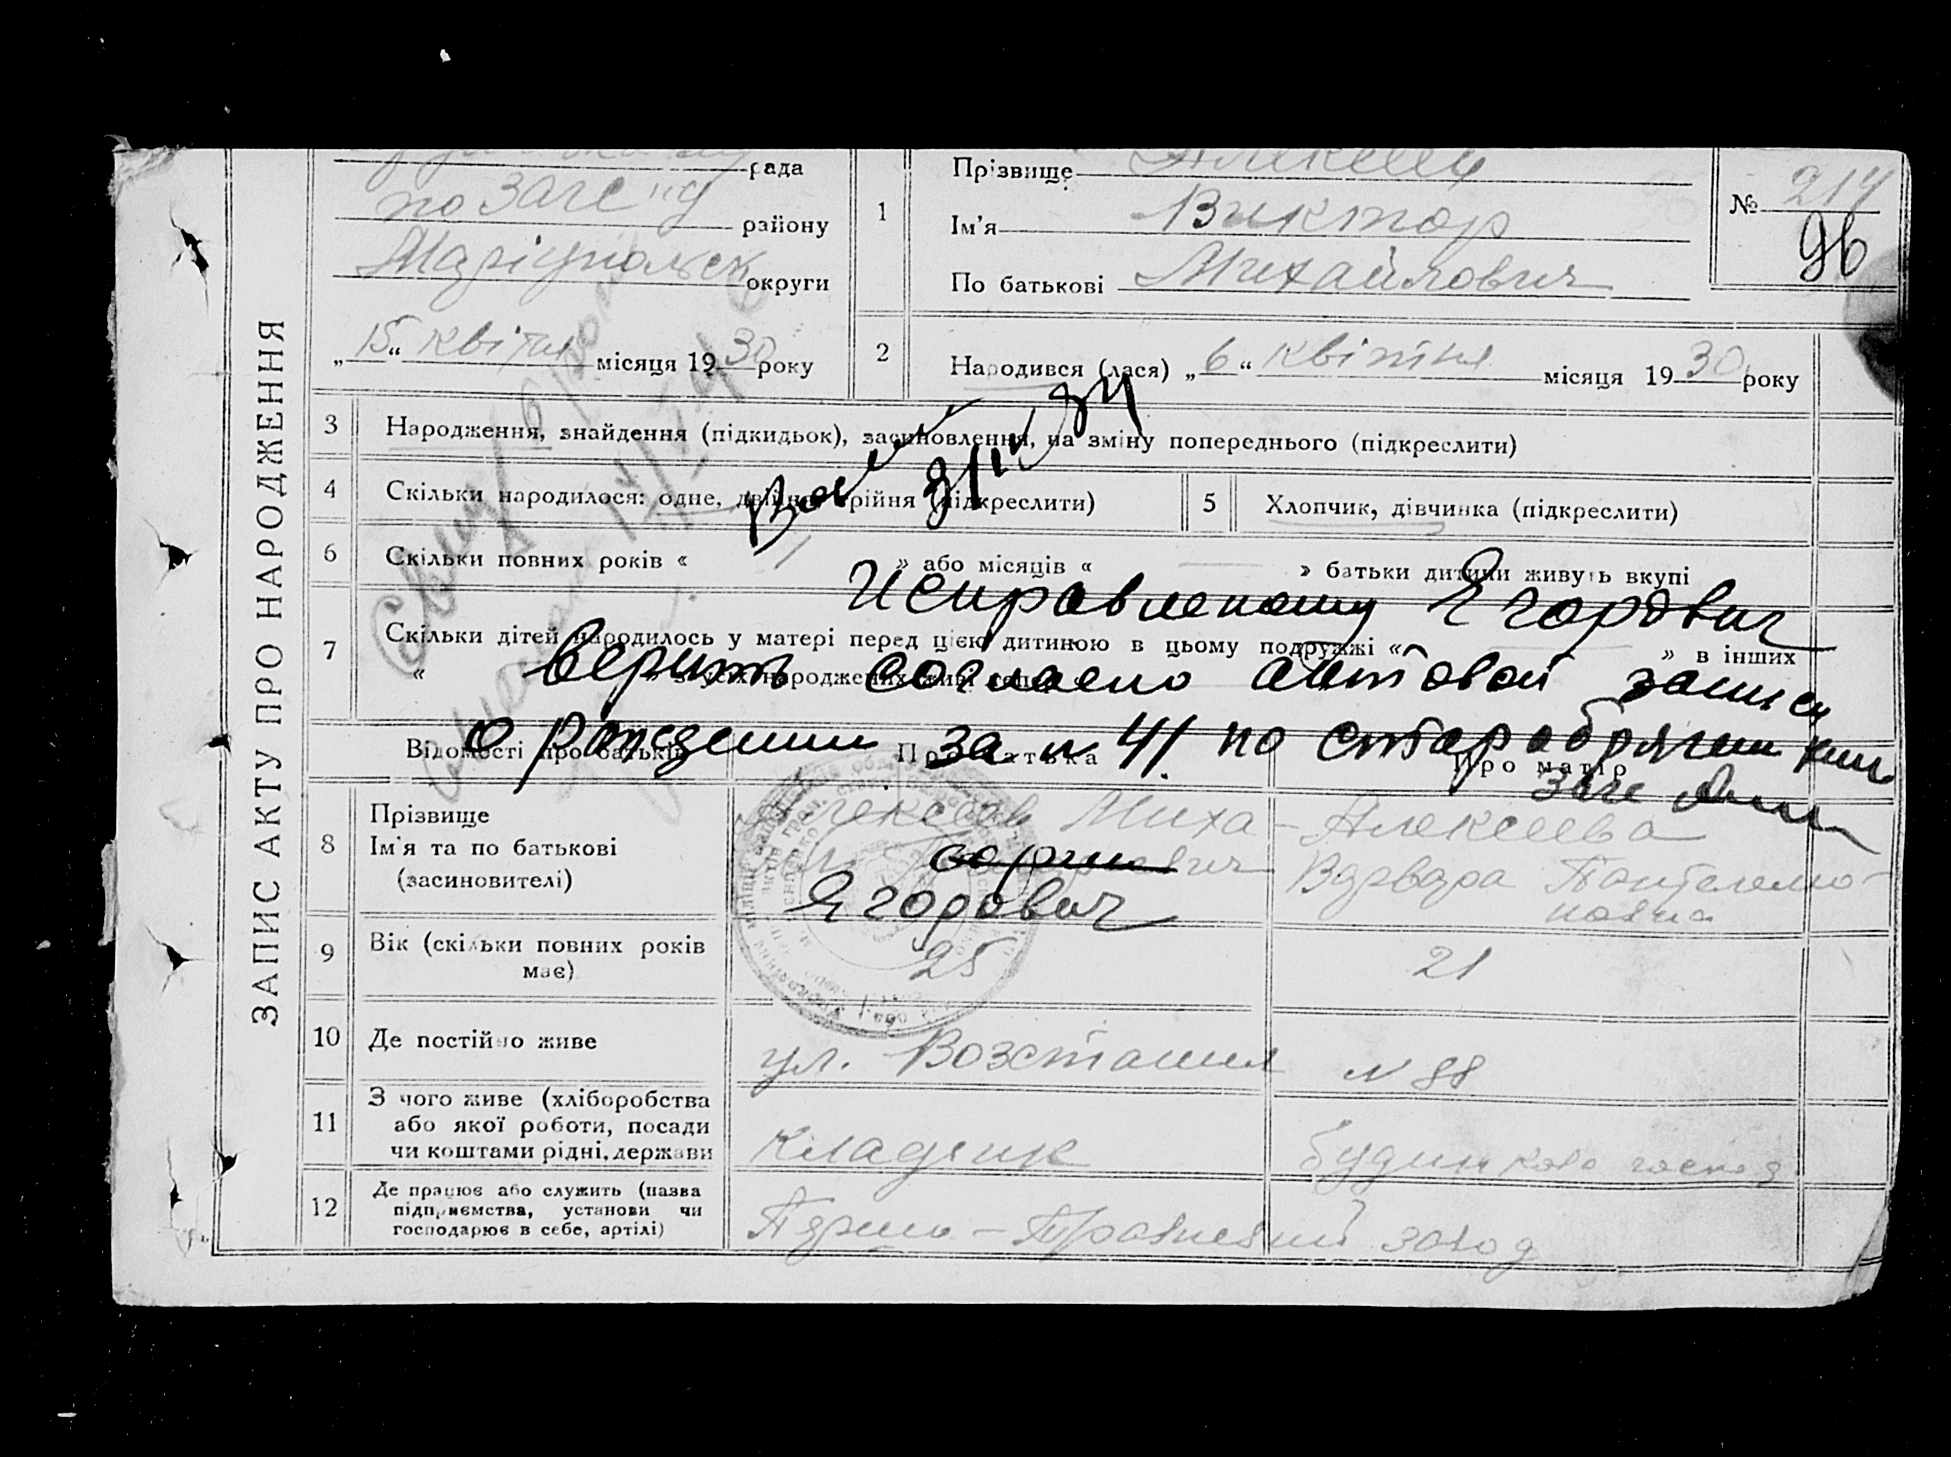 ЗАПИС АКТУ ПРО НАРОДЖЕННЯ
рада
по загс'у району
Маріупольськ округи
„15“ квітня місяця 1930 року
1
Прізвище
Ім'я Виктор
По батькові Михайлович
№ 214
96
2
Народився (лася) „6“ квітня місяця 1930 року
3
Народження, знайдення (підкидьок), засиновлення, на зміну попереднього (підкреслити)
4
Скільки народилося: одне, двійня, трійня (підкреслити)
5
Хлопчик, дівчинка (підкреслити)
6
Скільки повних років « » або місяців « » батьки дитини живуть вкупі
Исправленому Ягорович
7
Скільки дітей народилось у матері перед цією дитиною в цьому подружжі « » в інших
верить согласно актовой записи
о рождении за № 41 по старобрячии книг
загс
Відомості про батьків
Про батька
Про матір
8
Прізвище
Ім'я та по батькові
(засиновителі)
Алексеев Миха-
Ягорович
Алексеева
Варвара Пантелемо-
новна
9
Вік (скільки повних років
має)
25
21
10
Де постійно живе
ул. Возстания № 88
11
З чого живе (хліборобства
або якої роботи, посади
чи коштами рідні, держави
Кладчик
12
Де працює або служить (назва
підприємства, установи чи
господарює в себе, артілі)
завод